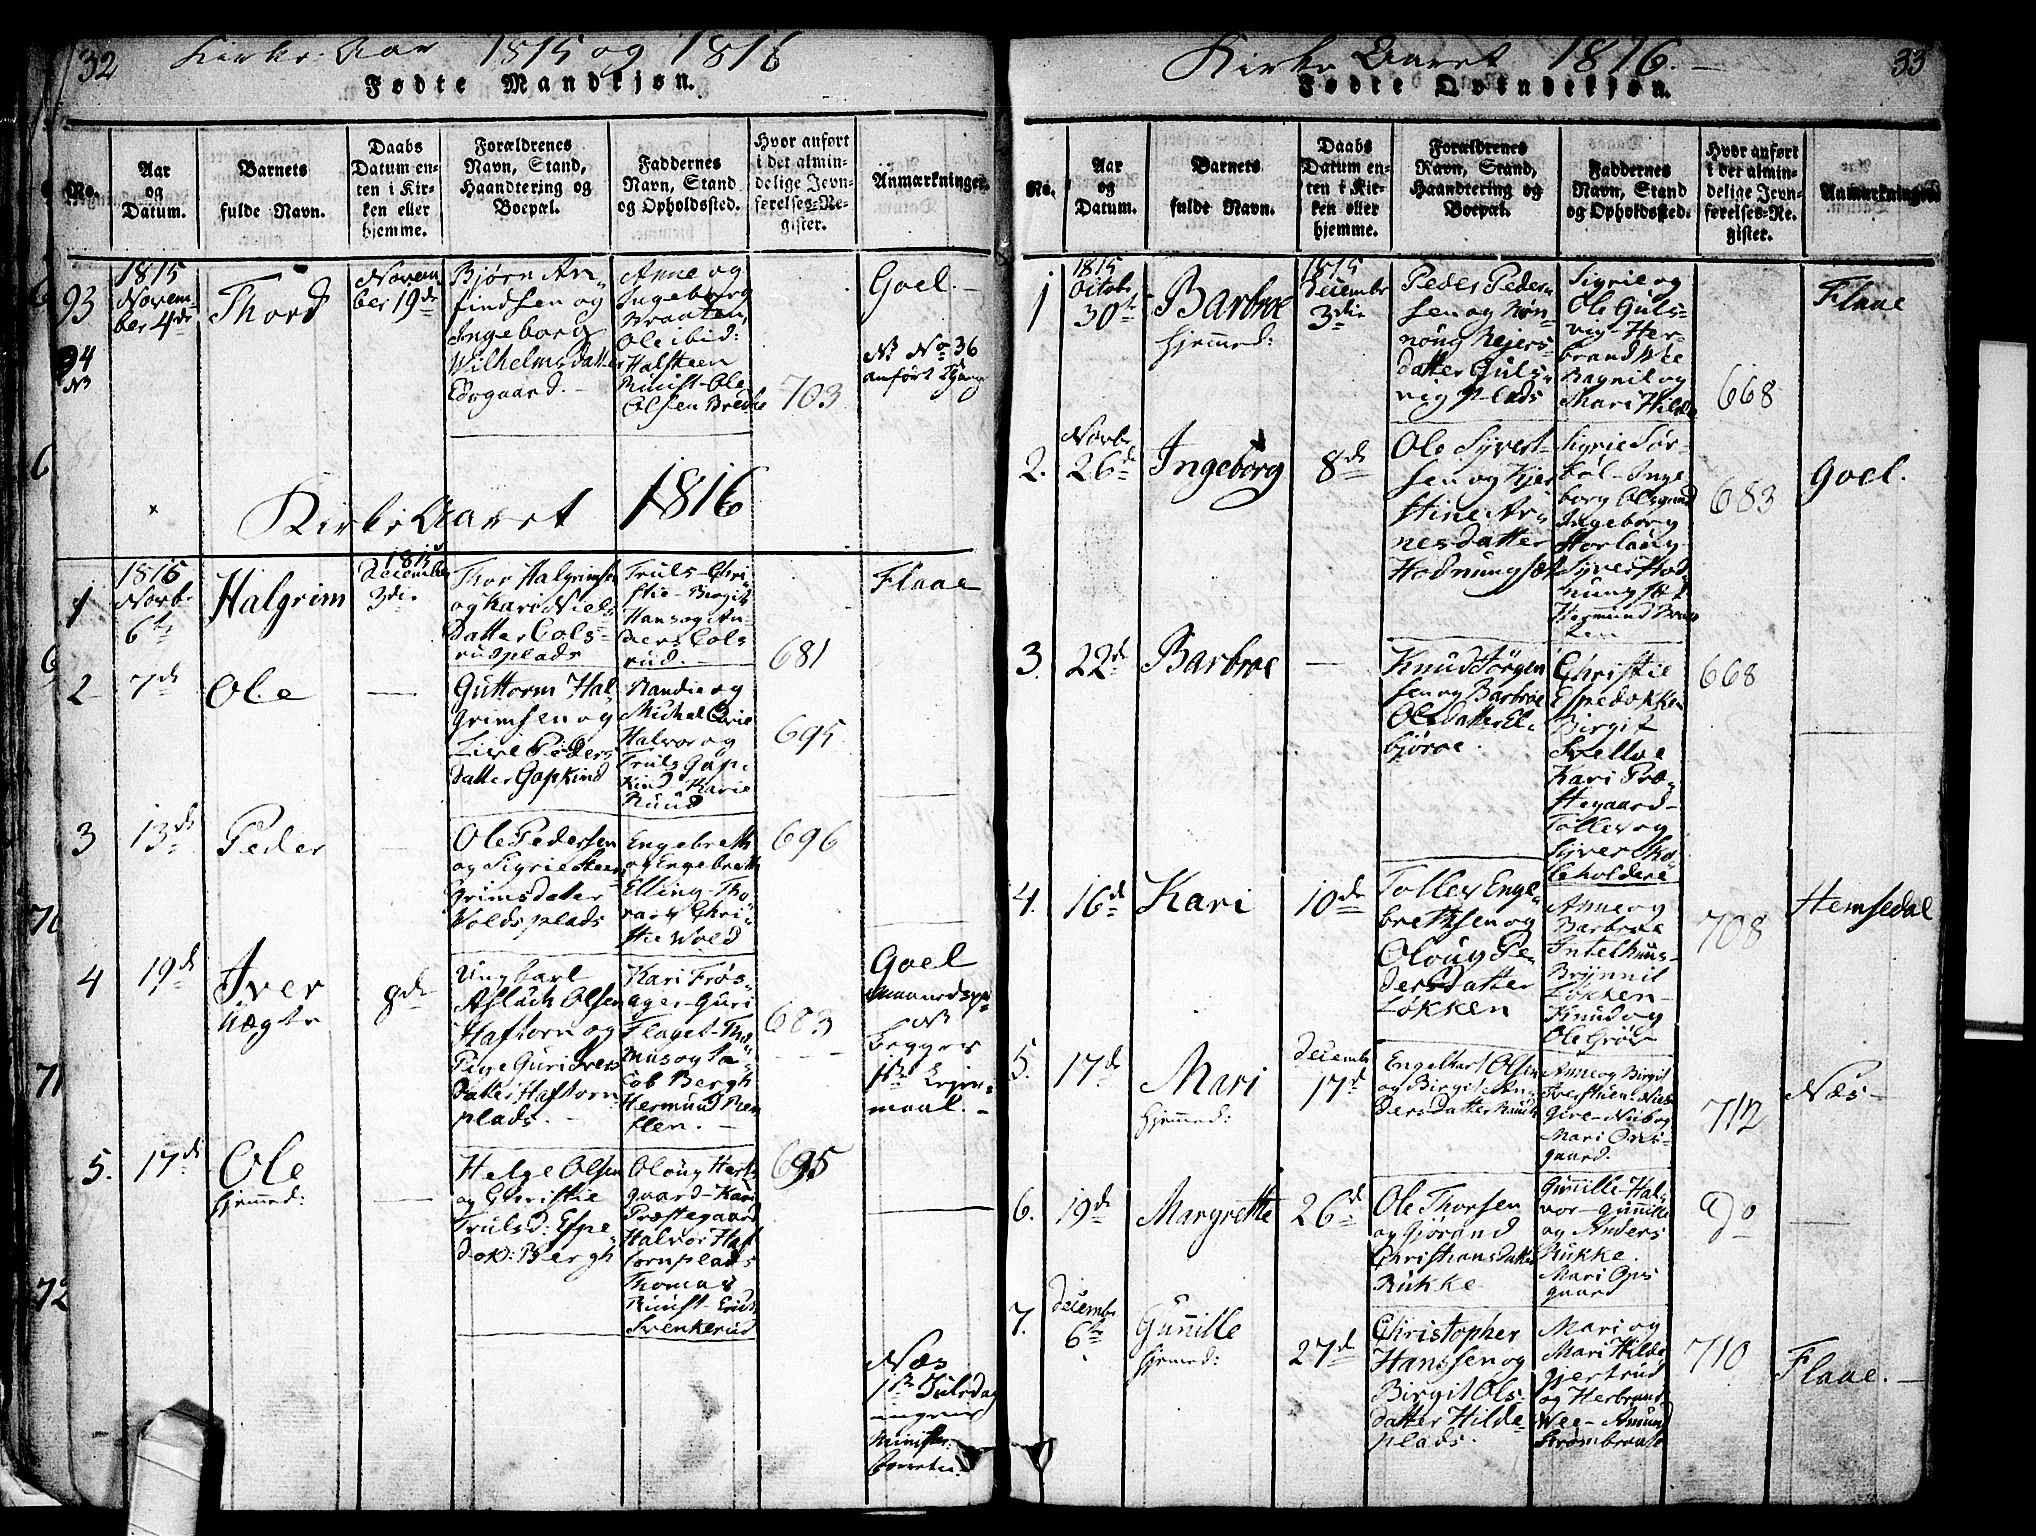 32 Kirke-Aar 1815 og 1816
Fødte Mandkjøn.
No.
Aar
og
Datum.
Barnets
fulde Navn.
Daabs
Datum en-
ten i Kir-
ken eller
hjemme.
Forældrenes
Navn, Stand,
Haandtering og
Boepæl.
Faddernes
Navn, Stand
og Opholdssted.
Hvor anført
i det almin-
delige Jevn-
førelses-Re-
gister.
Anmærkninger.
93
1815
Novem-
ber 4de
Thord
Novem-
ber 19de
Bjørn An-
findsen og
Ingeborg
Wilhelmsdatter
Eørgaard.
Anne og
Ingeborg
Braaten
Ole ibid:
Halsteen
Ruust - Ole
Olsen Brecke
703
Goel.
94
No 36
anført 2 Gange
Kirke Aaret 1816
1
1815
Novbr
6te
Halgrim
1815
December
3die
Thor Halgrimsen
og Kari Niels
Datter Cols-
rudplads
Truls - Chri-
stie - Birgit
Hans og An-
ders Cols
rud.
681
Flaae
2
7de
Ole
—
Guttorm Hal-
grimsen og
Live Peders
datter Gapkind
Randie og
Michel
Halvor og
Truls Gap-
kind - Karie
Ruud
695
3
13de
Peder
Ole Pedersen
og Sigrie Steen
Grimsdatter
Wolds plads
Engebreth
og Engebreth
Elling - Tho-
Chri-
stie Wold
696
4
19de
Iver
Uægte
8de
Ungkarl
Aslach Olsen
Haftorn og
Pige Guri Ivers
datter Haftorn-
plads.
Kari Frøs-
ager - Guri
Flaget - Tho-
mus og Ja-
cob Bergh
Hermund
683
Goel
begges
1ste Leier-
maal.
5.
17de
Ole
hjemmed:
Helge Olsen
og Christie
Trulsd: Espe-
dok: Bergh
Oloug Hert-
gaard - Kari
Præstegaard
Halvor Haf
tornplads
Thomas
Ruust - Erick
Svenkerud
695
Næs
1ste Juledag
ingen
Minister
33
Kirke Aaret 1816.
Fødte Qvindekjøn.
No.
Aar
og
Datum.
Barnets
fulde Navn.
Daabs
Datum en-
ten i Kir-
ken eller
hjemme.
Forældrenes
Navn, Stand,
Haandtering og
Boepæl.
Faddernes
Navn, Stand
og Opholdssted.
Hvor anført
i det almin-
delige Jevn-
førelses-Re-
gister.
Anmærkninger
1
1815
Octobr
30te
Barbroe
hjemmed:
1815
Decembr
3die
Peder Peder-
sen og Røn-
noug Rejers-
datter Guls-
vig Plads
Sigrie og
Ole Guls-
vig - Her-
brand Wee
Bagnil og
Mari Hilde
668
Flaae
2.
Novbr
26de
Ingeborg
8de
Ole Syvert-
sen og Kjer
stine Ar-
nesdatter
Hodnungset
Sigrie Sør-
bøl - Inge
borg Olsgaard
Ingeborg
Storlaug
Syver Hod-
nungset
683
Goel.
3.
22de
Barbroe
—
Knud Jørgen
sen og Barbroe
Olsdatter El-
bjøroe.
Christie
Espedokken
Birgit
Svelloe
Kari Præ-
stegaard -
Tollev og
Syver Ko-
leholdere
668
4.
16de
Kari
10de
Tollev Enge-
brethsen og
Oloug Pe-
dersdatter
Løkken
Anne og
Barbroe
Intelhuus-
Brynnil
Løkken -
Knud og
Ole Grøt
708
Hemsedal
5.
17de
Mari
hjemmed:
Decembr
17de
Engelbert Olsen
og Birgit An-
dersdatter Ruud
Anne og Birgit
Mari Opes-
gaard.
712
Næs -
6.
19de
Margrette
26de
Ole Thorsen
og Gjørand
Christiansdatter
Rukke
Gunnille - Hal-
vor - Gunnille
og Anders
Rukke.
Mari Opes
gaard
do
7.
Decembr
6te
Gunnille
hjemmed:
27de
Christopher
Hanssen og
Birgit Ols-
datter Hilde-
plads.
Mari og
Mari Hilde
Gjertrud
og Herbrand
Wee - Amund
Strømbraate
710
Flaae. -